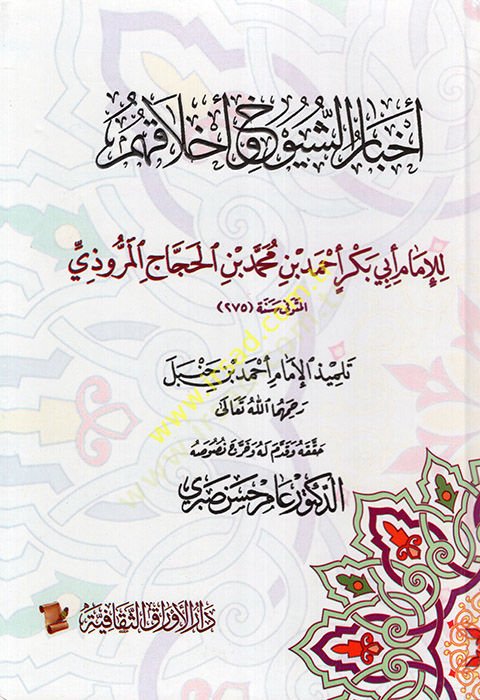 أخبار الشيوخ وأخلاقهم
للإمام أبي بكر أحمد بن محمد بن الحجاج المروذي
المتوفى سنة (٢٧٥)
تلميذ الإمام أحمد بن حنبل
رحمهما الله تعالى
حققه وقدم له وخرج نصوصه
الدكتور عامر حسن صبري
دار الأوراق الثقافية